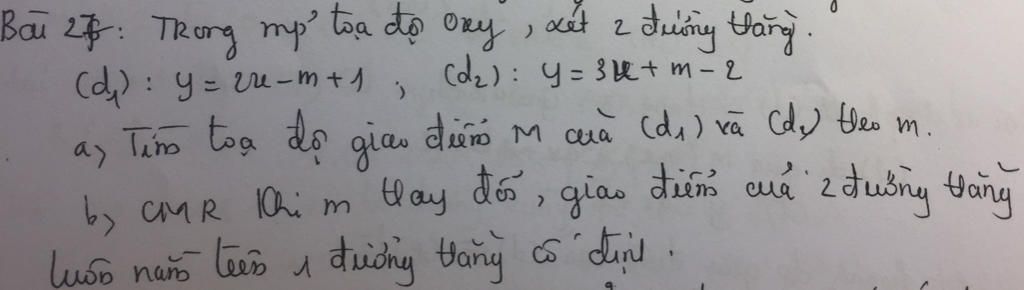 Bài 27: Trong mp' tọa độ Oxy, xét 2 đường thẳng.
(d1): y = 2x - m + 1 ; (d2): y = 3x + m - 2
a, Tìm tọa độ giao điểm M của (d1) và (d2) theo m.
b, CMR khi m thay đổi, giao điểm của 2 đường thẳng
luôn nằm trên 1 đường thẳng cố định.